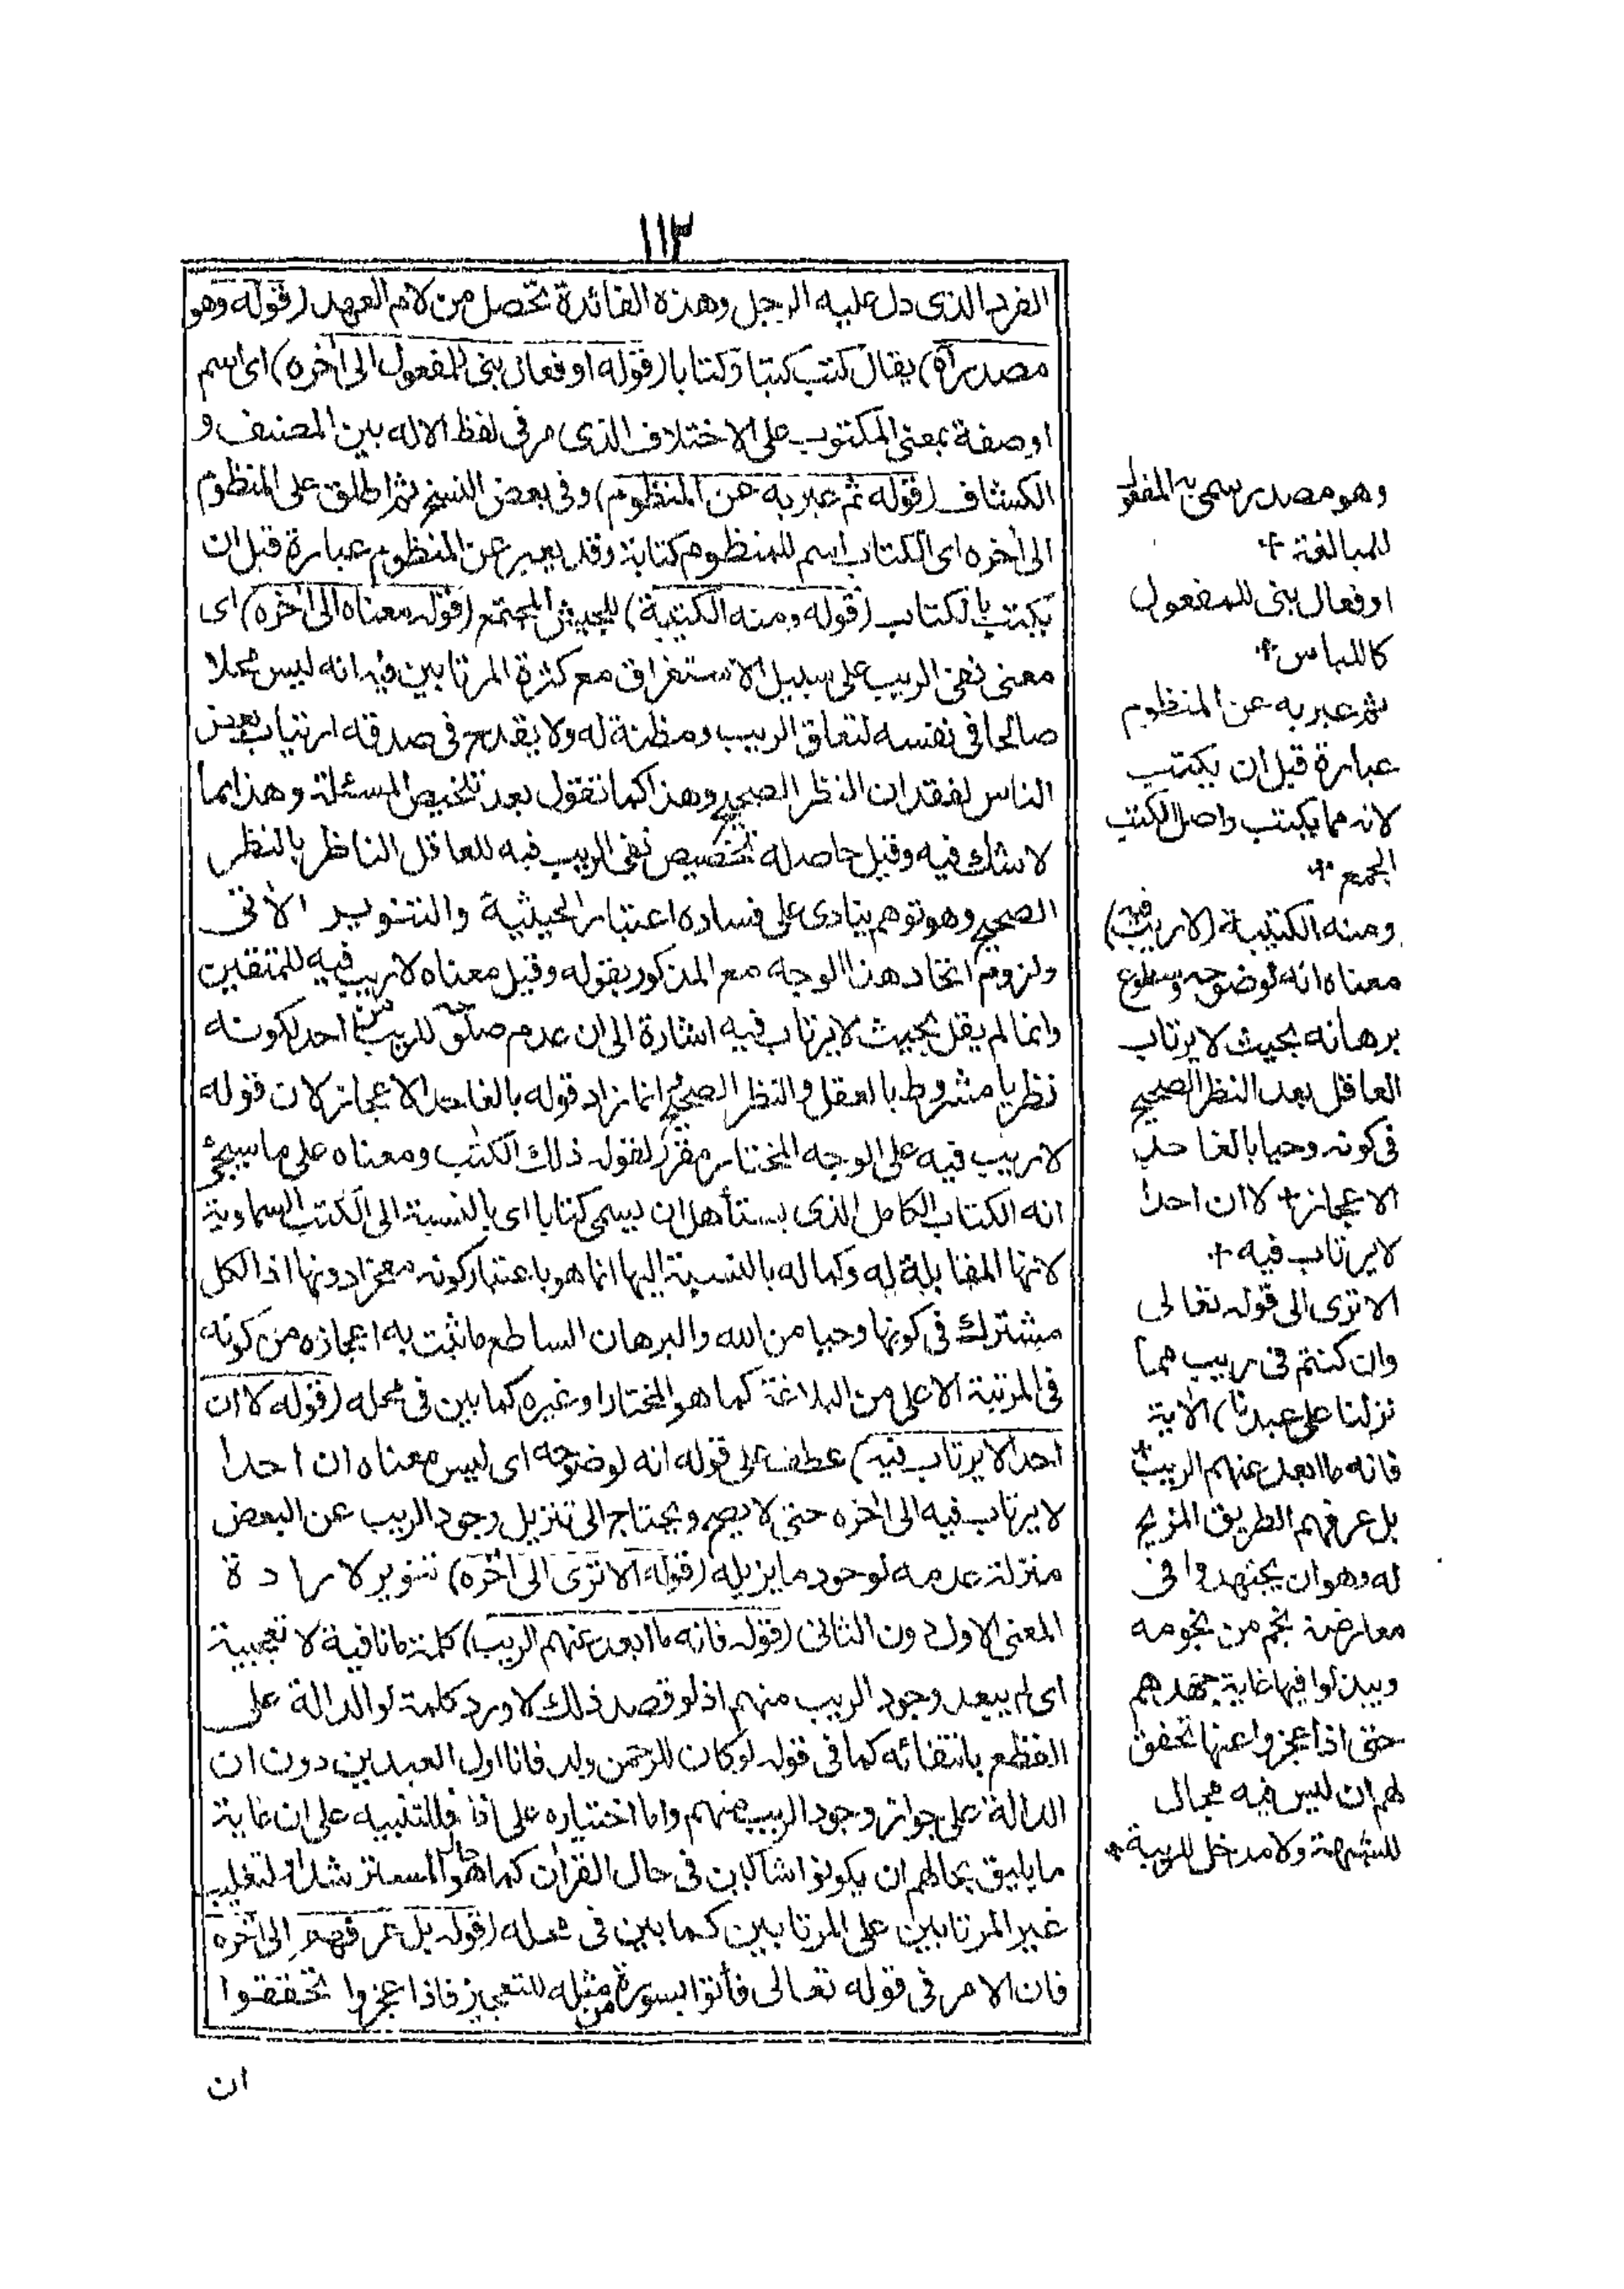 ١١٣
الفرد الذى دل عليه الرجل وهذه الفائدة تحصل من لام العهد (قوله وهو
مصدر آه) يقال كتب كتبا وكتابا (قوله او فعال بنى للمفعول الى أخره) اى اسم
او صفة بمعنى المكتوب على الاختلاف الذى مر فى لفظ الاله بين المصنف و
الكشاف (قوله ثم عبر به عن المنظوم) وفى بعض النسخ ثم اطلق على المنظوم
الى أخره اى الكتاب اسم للمنظوم كتابة وقد يعبر عن المنظوم عبارة قبل ان
يكتب بالكتاب (قوله ومنه الكتيبة) للجيش المجتمع (قوله معناه الى أخره) اى
معنى نفى الريب على سبيل الاستغراق مع كثرة المرتابين فيه انه ليس محلا
صالحا فى نفسه لتعلق الريب ومظنة له ولا يقدح فى صدقه ارتياب بعض
الناس لفقدان النظر الصحيح وهذا كما تقول بعد تلخيص المسئلة وهذا مما
لا شك فيه وقيل حاصله تخصيص نفى الريب فيه للعاقل الناظر بالنظر
الصحيح وهو توهم ينادى على فساده اعتبار الحيثية والتنوير الأتى
ولزوم اتحاد هذا الوجه مع المذكور بقوله وقيل معناه لا ريب فيه للمتقين
وانما لم يقل بحيث لا يرتاب فيه اشارة الى ان عدم للريب من احد لكونه
نظريا مشروط بالعقل والنظر الصحيح انما زاد قوله بالغا حد الاعجاز لان قوله
لا ريب فيه على الوجه المختار مقرر لقوله ذلك الكتب ومعناه على ما سيجئ
انه الكتاب الكامل الذى يستأهل ان يسمى كتابا اى بالنسبة الى الكتب السماوية
لانها المقابلة له وكماله بالنسبة اليها انما هو باعتبار كونه معجزا دونها اذ الكل
مشترك فى كونها وحيا من الله والبرهان الساطع ما ثبت به اعجازه من كونه
فى المرتبة الاعلى من البلاغة كما هو المختار او غيره كما بين فى محله (قوله لا ان
احدا لا يرتاب فيه) عطف على قوله انه لوضوحه اى ليس معناه ان احدا
لا يرتاب فيه الى أخره حتى لا يصح ويحتاج الى تنزيل وجود الريب عن البعض
منزلة عدمه لوجود ما يزيله (قوله الا ترى الى أخره) تنوير لارادة
المعنى الاول دون الثانى (قوله فانه ما ابعد عنهم الريب) كلمة ما نافية لا تعجبية
اى لم يبعد وجود الريب منهم اذ لو قصد ذلك لاورد كلمة لو الدالة على
القطع بانتفائه كما فى قوله لو كان للرحمن ولد فانا اول العبدين دون ان
الدالة على جواز وجود الريب منهم واما اختياره على اذا فللتنبيه على ان غاية
ما يليق بحالهم ان يكونوا شاكين فى حال القرأن كما هو حال المسترشد او لتغليب
غير المرتابين على المرتابين كما بين فى محله (قوله بل عرفهم الى أخره
فان الامر فى قوله تعالى فأتوا بسورة من مثله للتعجيز فاذا عجزوا تحققوا
ان
وهو مصدر سمى به المفعول
للمبالغة
او فعال بنى للمفعول
كاللباس
ثم عبر به عن المنظوم
عبارة قبل ان يكتب
لانه مما يكتب واصل الكتب
الجمع
ومنه الكتيبة (لا ريب فيه)
معناه انه لوضوحه وسطوع
برهانه بحيث لا يرتاب
العاقل بعد النظر الصحيح
فى كونه وحيا بالغا حد
الاعجاز لا ان احدا
لا يرتاب فيه
الا ترى الى قوله تعالى
وان كنتم فى ريب مما
نزلنا على عبدنا) الأية
فانه ما ابعد عنهم الريب
بل عرفهم الطريق المزيح
له وهو ان يجتهدوا فى
معارضة نجم من نجومه
ويبذلوا فيها غاية جهدهم
حتى اذا عجزوا عنها تحقق
لهم ان ليس فيه مجال
للشبهة ولا مدخل للريبة